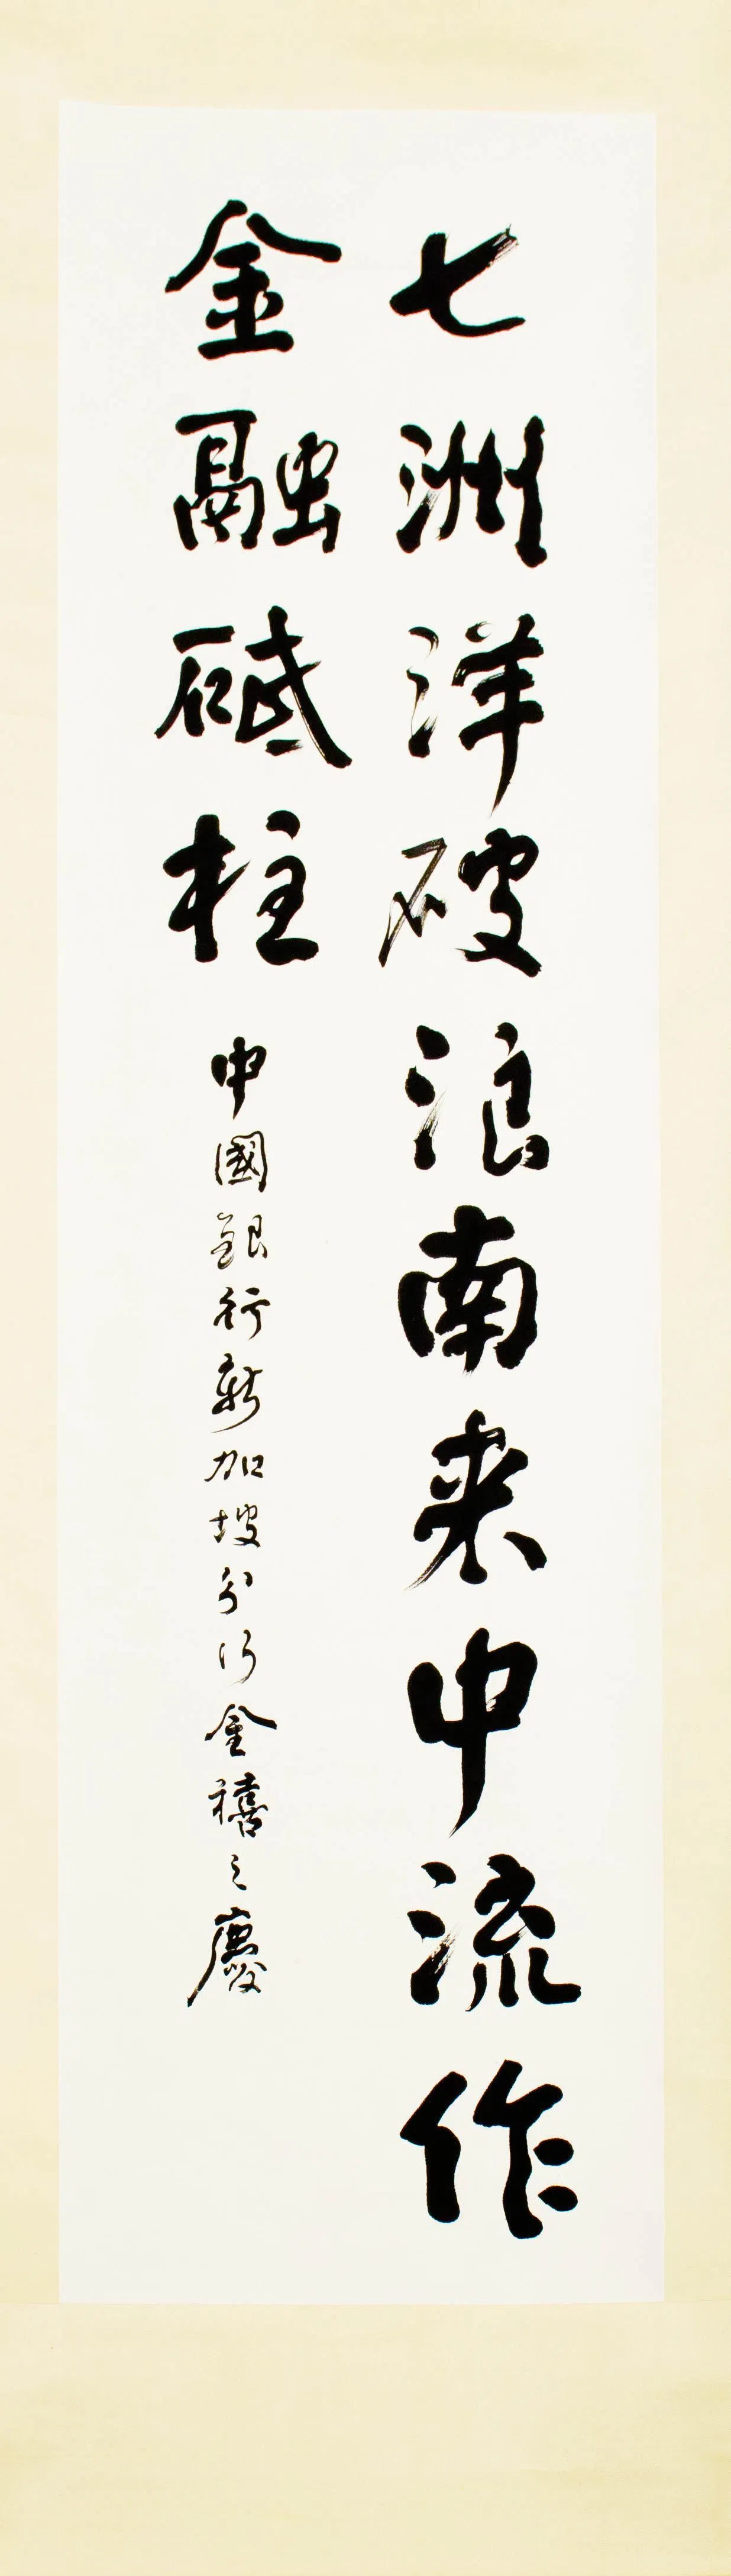 七洲洋破浪南来中流作
金融砥柱
中國銀行新加坡分行金禧之慶